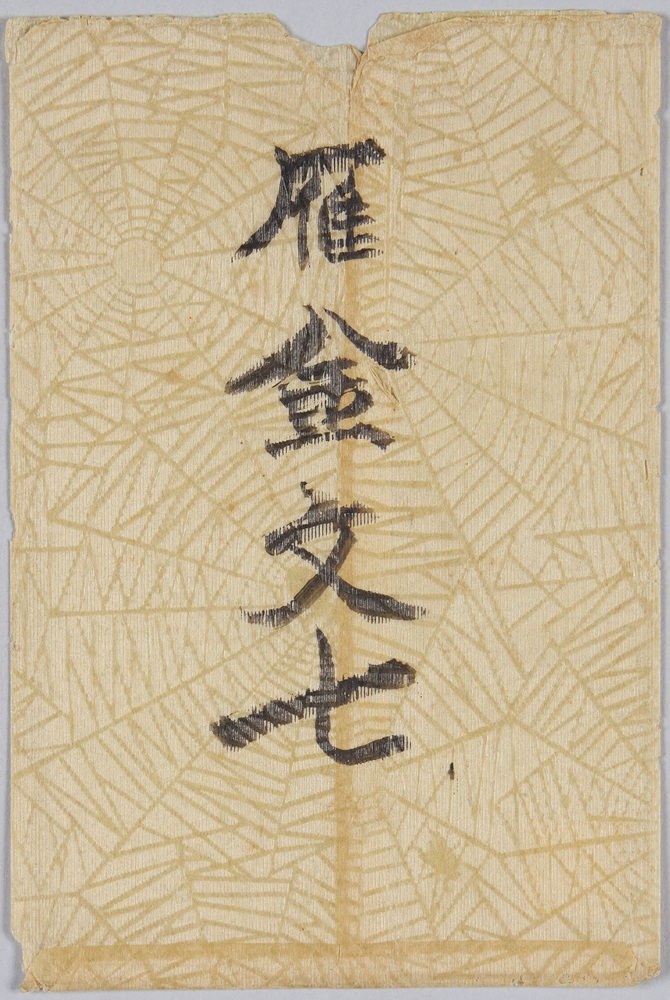 雁金文七